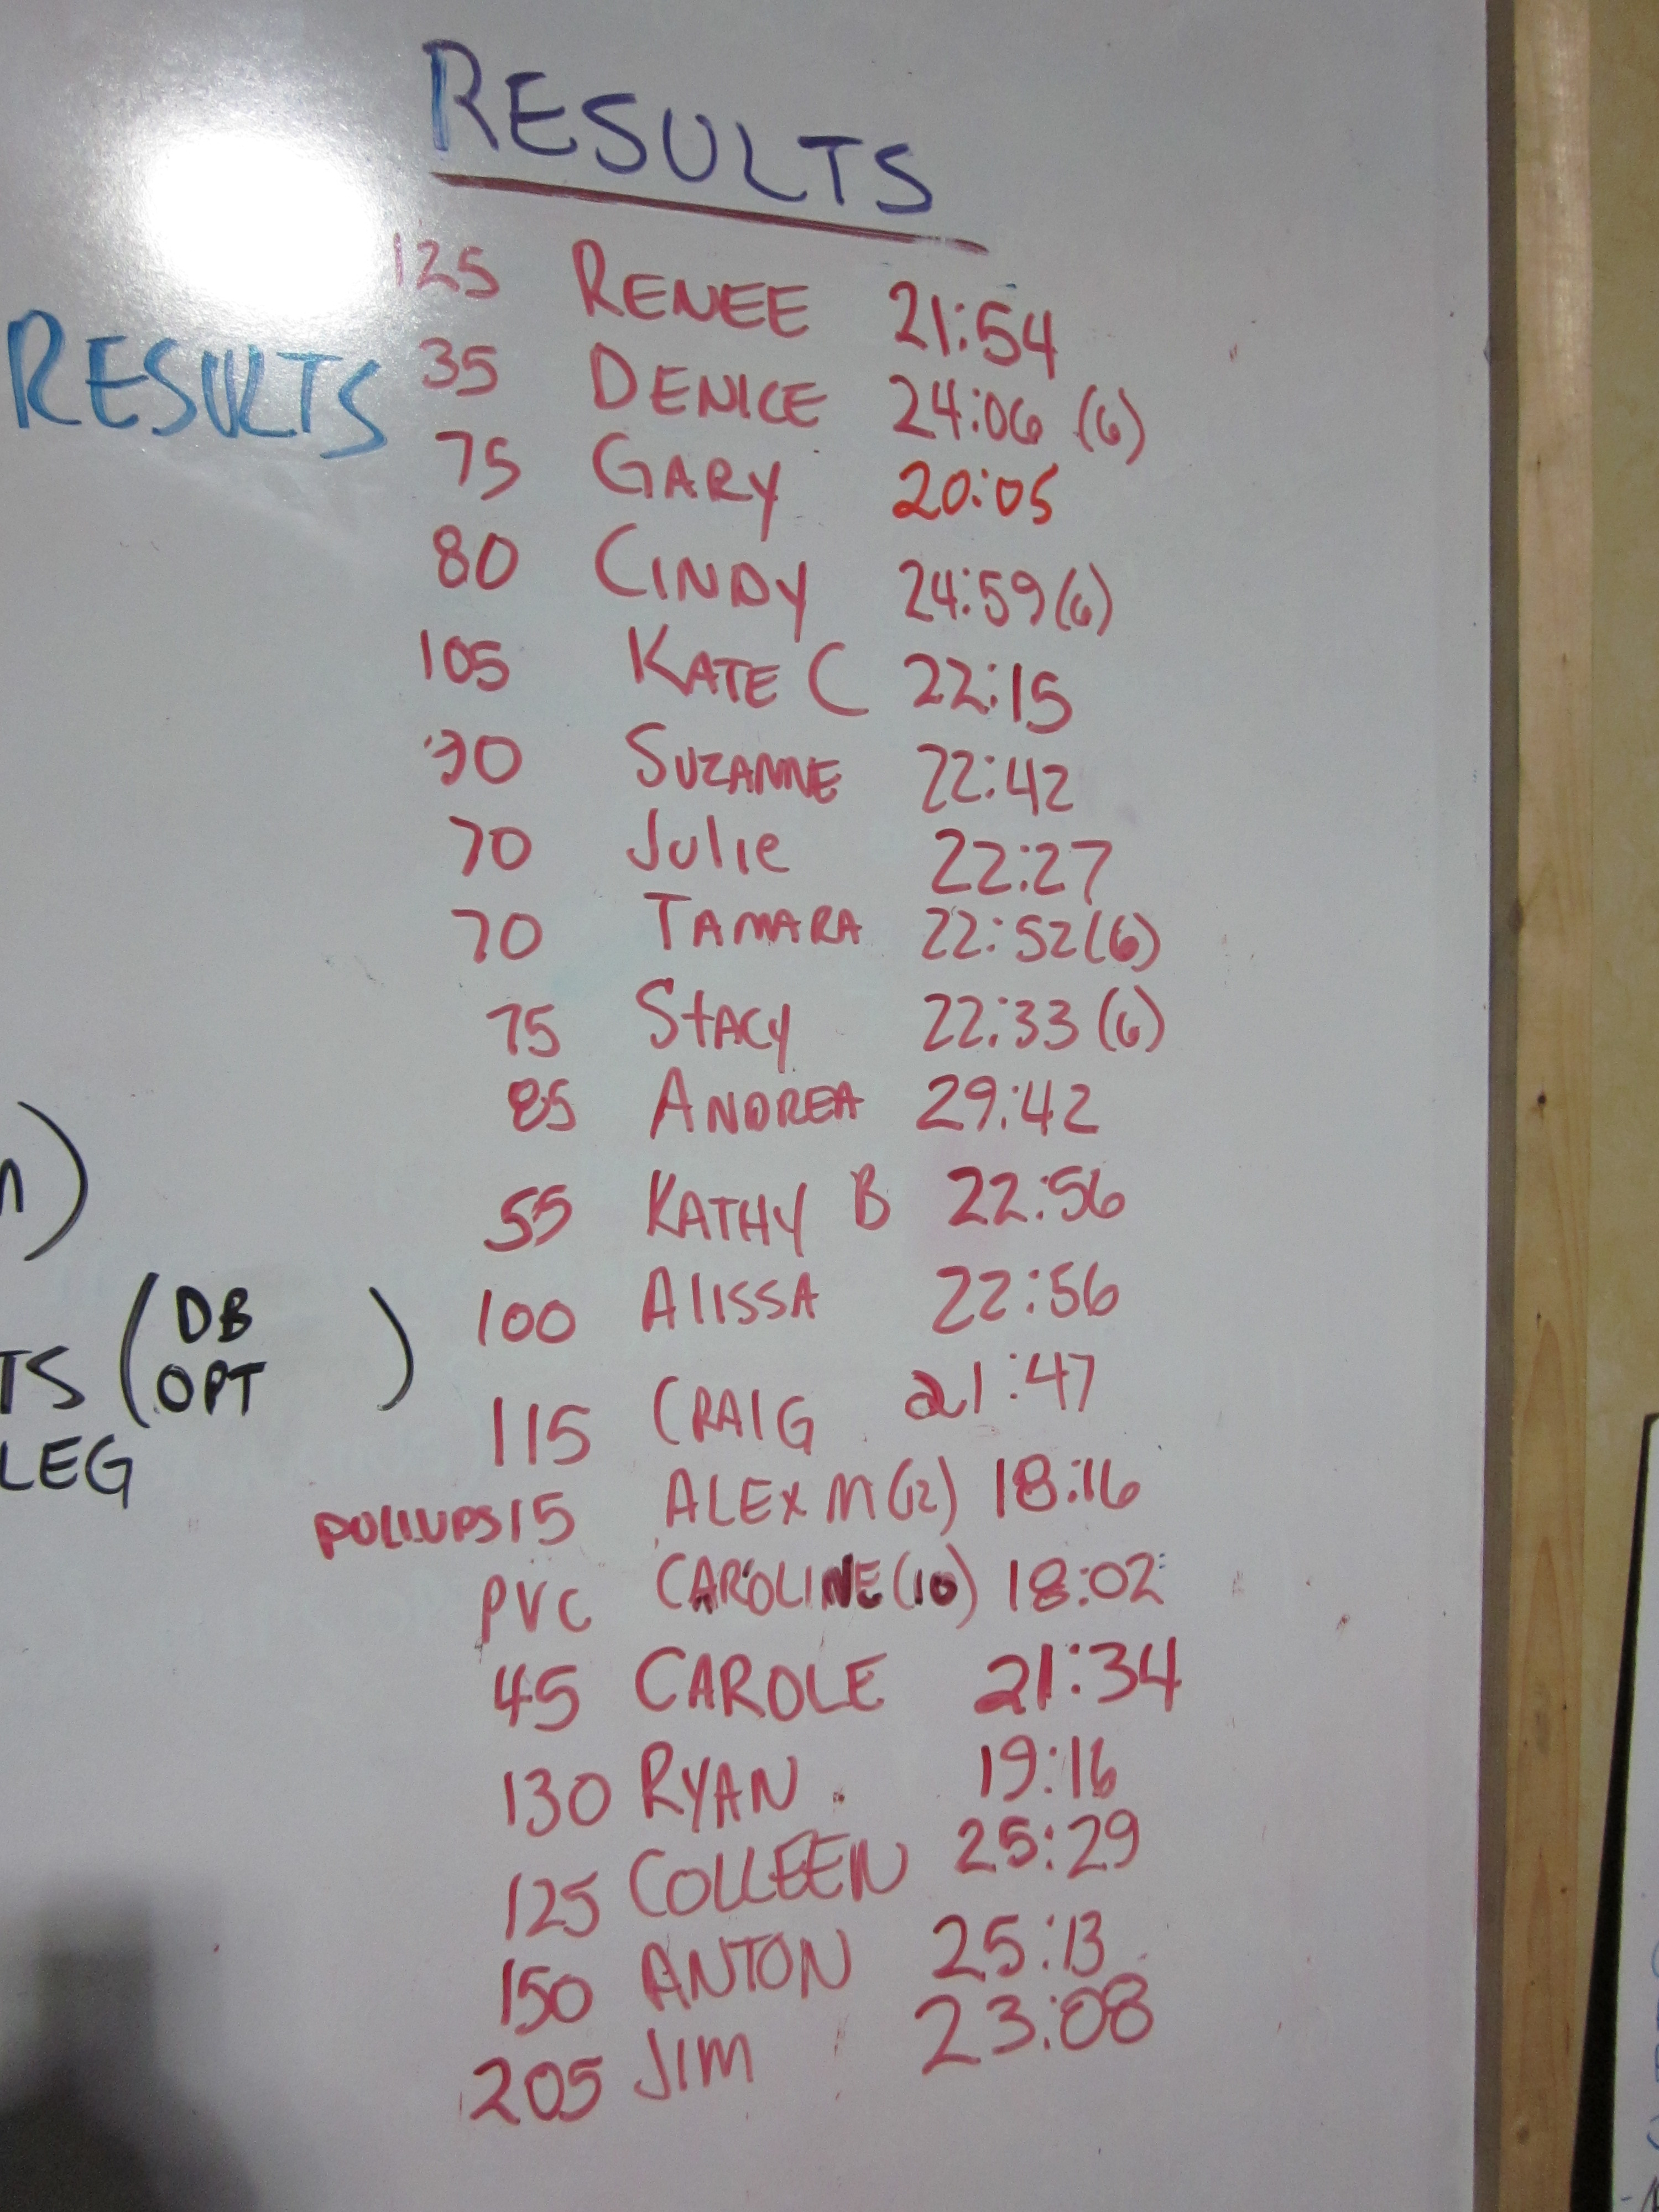 RESULTS
125 RENEE 21:54
RESULTS
35 DENICE 24:06 (6)
75 GARY 20:05
80 CINDY 24:59 (6)
105 KATE C 22:15
SUZANNE 22:42
70 Julie 22:27
70 TAMARA 22:52 (6)
75 STACY 22:33 (6)
85 ANDREA 29:42
55 KATHY B 22:56
100 ALISSA 22:56
(DB OPT)
115 CRAIG 21:47
LEG
PULLUPS 15 ALEX M (12) 18:16
PVC CAROLINE (10) 18:02
45 CAROLE 21:34
130 RYAN 19:16
125 COLLEEN 25:29
150 ANTON 25:13
205 JIM 23:08